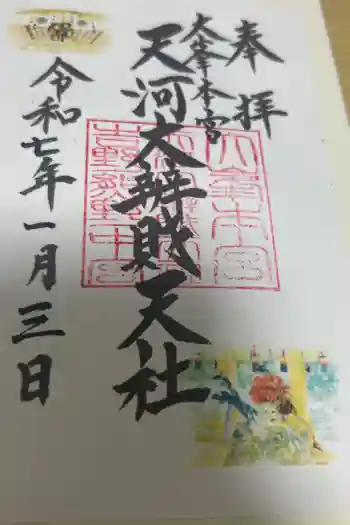 奉拝
大峯本宮
天河大辨財天社
令和七年一月三日